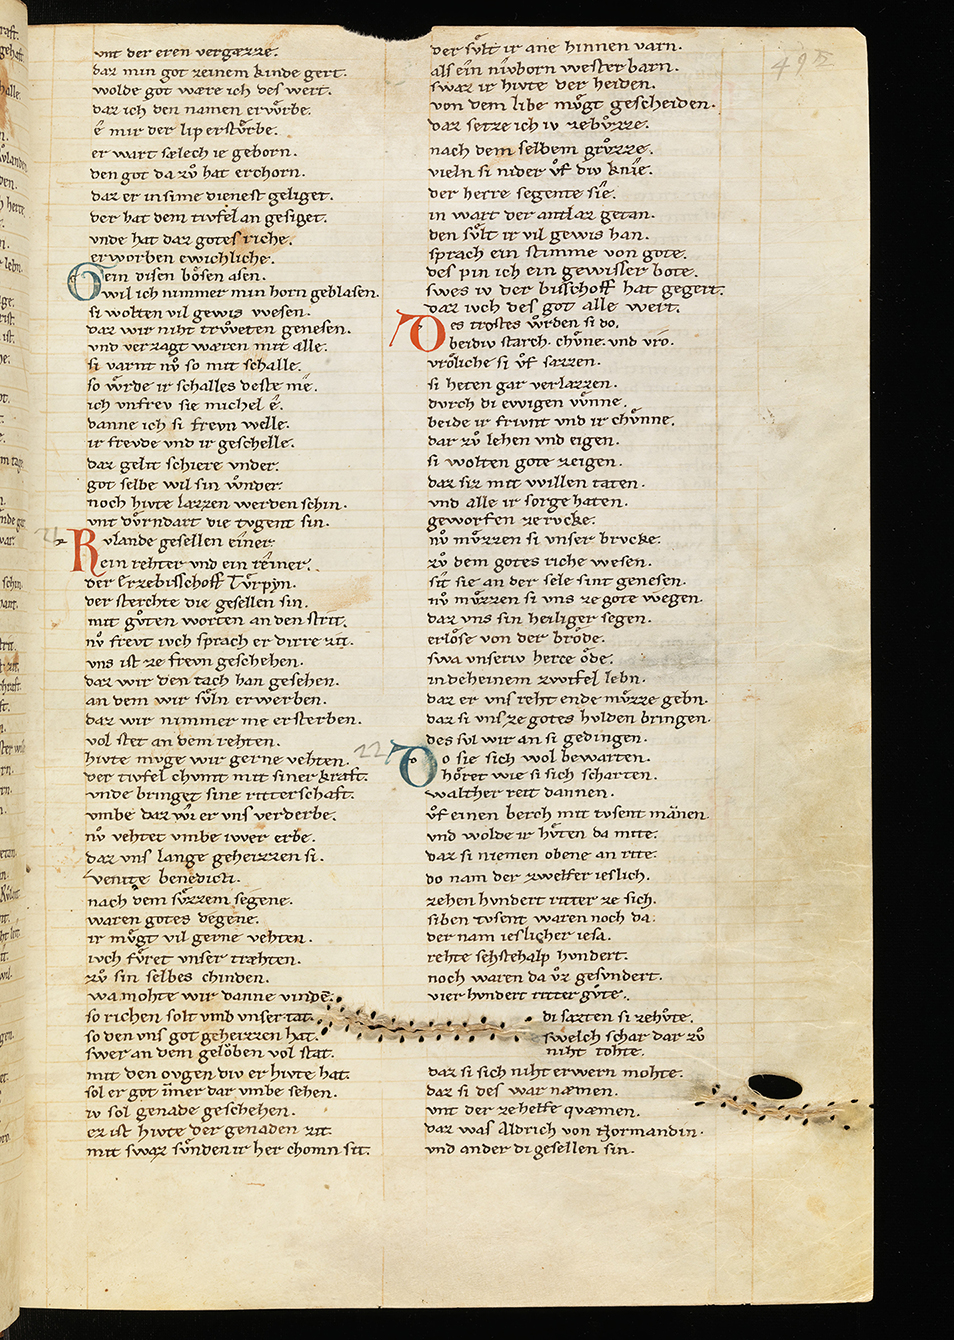 vnt der eren vergæzze.
daz min got zeinem kinde gert.
wolde got wære ich des wert.
daz ich den namen erwͦrbe.
ê mir der lip erstͦrbe.
er wart sælech ie geborn.
den got da zv̊ hat erchorn.
daz er in sime dienest geliget.
der hat dem tivfel an gesiget.
vnde hat daz gotes riche.
erworben ewichliche.
Gein disen bôsen asen.
wil ich nimmer min horn geblasen.
si wolten vil gewis wesen.
daz wir niht trv̊weten genesen.
vnd verzagt wæren mit alle.
si varnt nv̊ so mit schalle.
so wͦrde ir schalles deste mê.
ich vnfrev sie michel ê.
danne ich si frevn welle.
ir frevde vnd ir geschelle.
daz gelit schiere vnder.
got selbe wil sin wͦnder.
noch hivte lazzen werden schin.
vnt dv̊rndart die tvgent sin.
21
Rvlande gesellen einer
ein rehter vnd ein reiner.
der Erzebisschoff Tv̊rpyn.
der sterchte die gesellen sin.
mit gv̊ten worten an den strit.
nv̊ frevt ivch sprach er dirre zit.
vns ist ze frevn geschehen.
daz wir den tach han gesehen.
an dem wir sv̊ln erwerben.
daz wir nimmer me ersterben.
vol stet an dem rehten.
hivte mvge wir gerne vehten.
der tivfel chvmt mit siner kraft.
vnde bringet sine ritterschaft.
vmbe daz wi er vns verderbe.
nv̊ vehtet vmbe iwer erbe.
daz vns lange geheizzen si.
venite benedicti.
nach dem sv̊zzem segene.
waren gotes degene.
ir mv̊gt vil gerne vehten.
ivch fv̊ret vnser træhten.
zv̊ sin selbes chinden.
wa mohte wir danne vinden.
so richen solt vmb vnser tat.
so den vns got geheizzen hat.
swer an dem gelôben vol stat.
mit den ovgen div er hivte hat.
sol er got im̄er dar vmbe sehen.
iv sol genade geschehen.
ez ist hivte der genaden zit.
mit swaz sv̊nden ir her chomn sit.
49r
der sv̊lt ir ane hinnen varn.
als ein nivborn westerbarn.
swaz ir hivte der heiden.
von dem libe mv̊gt gescheiden.
daz setze ich iv ze bv̊zze.
nach dem selbem grv̊zze.
vieln si nider v̊f div knie.
der herre segente sie.
in wart der antlaz getan.
den sv̊lt ir vil gewis han.
sprach ein stimme von gote.
des pin ich ein gewisser bote.
swes iv der bisschoff hat gegert.
daz ivch des got alle wert.
Des trostes wͦrden si do.
beidiv starch. chv̊ne. vnd vro.
vrôliche si v̊f sazzen.
si heten gar verlazzen.
dvrch di ewigen wnne.
beide ir frivnt vnd ir chv̊nne.
dar zv̊ lehen vnd eigen.
si wolten gote zeigen.
daz siz mit willen taten.
vnd alle ir sorge haten.
geworfen ze rvcke.
nv̊ mv̊zzen si vnser brvcke.
zv̊ dem gotes riche wesen.
sit sie an der sele sint genesen.
nv̊ mv̊zzen si vns ze gote wegen.
daz vns sin heiliger segen.
erlôse von der brôde.
swa vnseriv herce ôde.
in decheinem zwifel lebn.
daz er vns reht ende mv̊zze gebn.
daz si vns ze gotes hvlden bringen.
des svl wir an si gedingen.
22
Do sie sich wol bewarten.
hôret wie si sich scharten.
walther reit dannen.
v̊f einen berch mit tvsent mannen.
vnd wolde ir hv̊ten da mite.
daz si niemen obene an rite.
do nam der zwelfer ieslich.
zehen hvndert ritter ze sich.
siben tvsent waren noch da.
der nam ieslicher iesa.
rehte sehstehalp hvndert.
noch waren da v̊z gesvndert.
vier hvndert ritter gv̊te.
di sazten si ze hv̊te.
swelch schar dar zv̊
niht tohte.
daz si sich niht erwern mohte.
daz si des war næmen.
vnt der ze helfe qvæmen.
daz was Aldrich von Normandin.
vnd ander di gesellen sin.